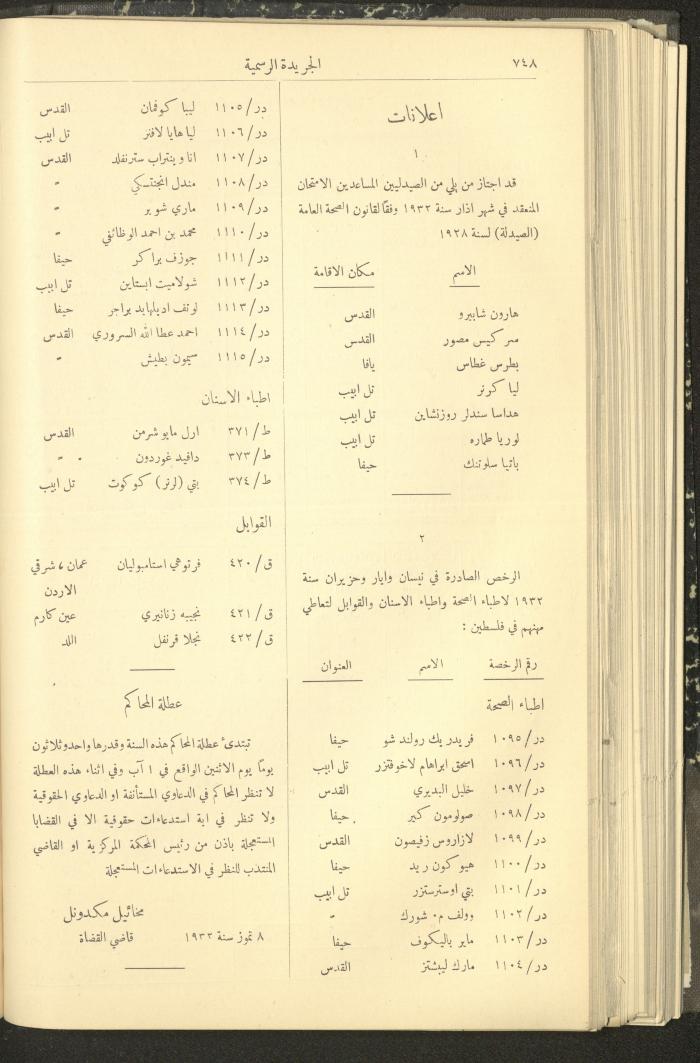 ٧٤٨
الجريدة الرسمية
اعلانات
١
قد اجتاز من يلي من الصيدليين المساعدين الامتحان
المنعقد في شهر اذار سنة ١٩٣٢ وفقاً لقانون الصحة العامة
(الصيدلة) لسنة ١٩٢٨
الاسم مكان الاقامة
هارون شابيرو القدس
سركيس مصور القدس
بطرس غطاس يافا
ليا كرنر تل ابيب
هداسا سندلر روزنشاين تل ابيب
لوريا طماره تل ابيب
باتيا سلوتنك حيفا
٢
الرخص الصادرة في نيسان وايار وحزيران سنة
١٩٣٢ لاطباء الصحة واطباء الاسنان والقوابل لتعاطي
مهنهم في فلسطين :
رقم الرخصة الاسم العنوان
اطباء الصحة
در/١٠٩٥ فريدريك رولند شو حيفا
در/١٠٩٦ اسحق ابراهام لاخوفتزر تل ابيب
در/١٠٩٧ خليل البديري القدس
در/١٠٩٨ صولومون كبر حيفا
در/١٠٩٩ لازاروس زفيصون القدس
در/١١٠٠ هيو كون ريد حيفا
در/١١٠١ بتي اوسترستزر تل ابيب
در/١١٠٢ وولف م٠ شورك "
در/١١٠٣ ماير باليكوف حيفا
در/١١٠٤ مارك ليبشتز القدس
در/١١٠٥ ليبا كوفمان القدس
در/١١٠٦ ليا هايا لافنر تل ابيب
در/١١٠٧ انا وينتراب سترنفلد القدس
در/١١٠٨ مندل انجنتسكي "
در/١١٠٩ ماري شوبر "
در/١١١٠ محمد بن احمد الوظائفي "
در/١١١١ جوزف براكر حيفا
در/١١١٢ شولاميت ابستاين تل ابيب
در/١١١٣ لوتف اديلهايد براجر حيفا
در/١١١٤ احمد عطا الله السروري القدس
در/١١١٥ سيمون بطيش "
اطباء الاسنان
ط/٣٧١ ارل مايو شرمن القدس
ط/٣٧٣ دافيد غوردون "
ط/٣٧٤ بتي (لرنر) كوكوت تل ابيب
القوابل
ق/٤٢٠ فرتوهي استامبوليان عمان، شرقي
الاردن
ق/٤٢١ نجيبه زنانيري عين كارم
ق/٤٢٢ نجلا قرنفل اللد
عطلة المحاكم
تبتدئ عطلة المحاكم هذه السنة وقدرها واحد وثلاثون
يوماً يوم الاثنين الواقع في ١ آب وفي اثناء هذه العطلة
لا تنظر المحاكم في الدعاوي المستأنفة او الدعاوي الحقوقية
ولا تنظر في اية استدعاءات حقوقية الا في القضايا
المستعجلة باذن من رئيس المحكمة المركزية او القاضي
المنتدب للنظر في الاستدعاءات المستعجلة
مخائيل مكدونل
٨ تموز سنة ١٩٣٢ قاضي القضاة